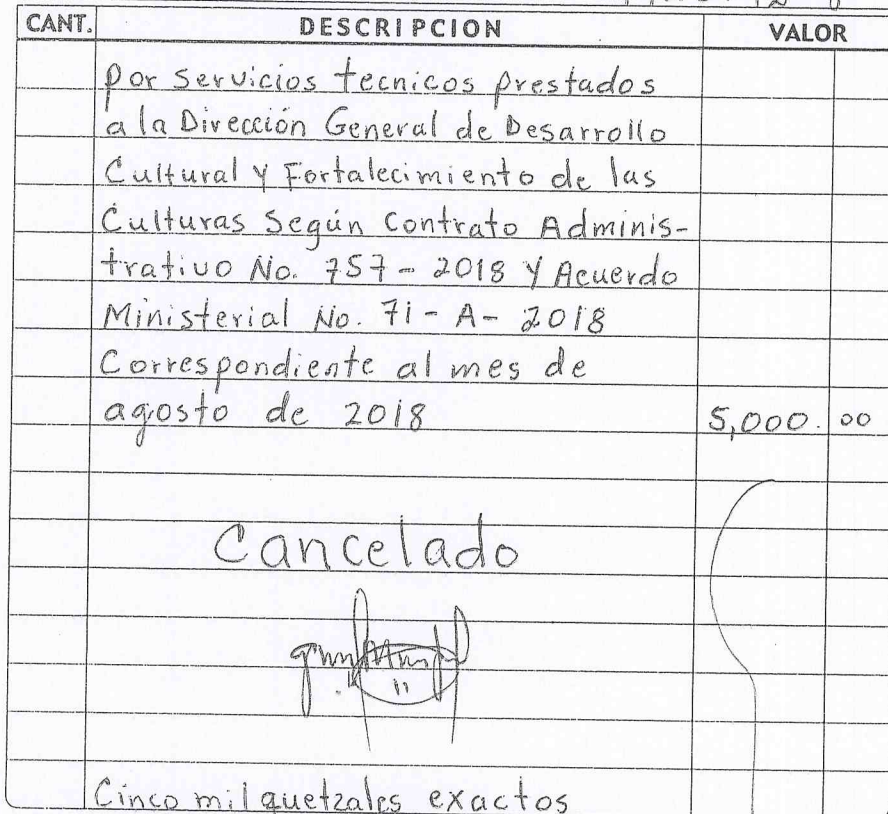 CANT. DESCRIPCION VALOR
por servicios tecnicos prestados
a la Dirección General de Desarrollo
Cultural y Fortalecimiento de las
Culturas Según Contrato Adminis-
trativo No. 757 - 2018 Y Acuerdo
Ministerial No. 71 - A - 2018
Correspondiente al mes de
agosto de 2018 5,000. 00
Cancelado
Cinco mil quetzales exactos